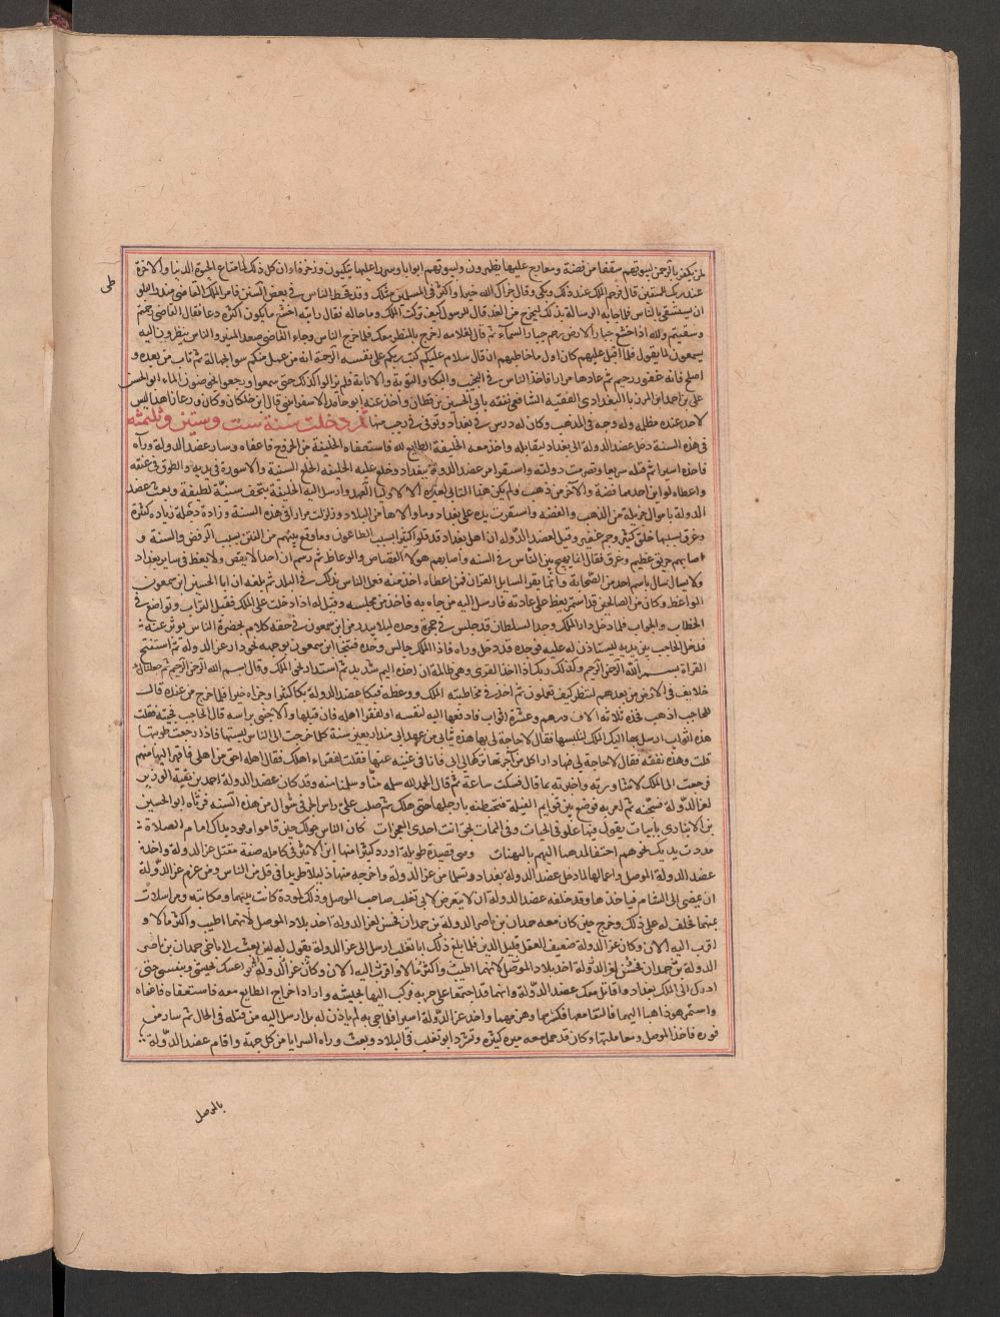 لمن يكفر بالرحمن لبيوتهم سقفا من فضة ومعارج عليها يظهرون ولبيوتهم ابوابا وسررا عليها يتكئون وزخرفا وان كل ذلك لما متاع الحيوة الدنيا والاخرة
عند ربك للمتقين قال فوجم الملك عند ذلك وبكى وقال جزاك الله خيرا واكثر في المسلمين مثلك وقد قحط الناس في بعض السنين فامر الملك القاضى منذر
ان يستسقى بالناس فلما جاته الرسالة بذلك ليخرج من الغد قال للرسول كيف تركت الملك وما حاله فقال رايته اخشع ما يكون اكثره دعا فقال القاضى رحمتم
وسقيتم والله اذا خشع جبار الارض رحم جبار السماء ثم قال لغلامه اخرج بالممطر معك فلما خرج الناس وجاء القاضى صعد المنبر والناس ينظرون اليه
يسمعون لما يقول فلما اقبل عليهم كان اول ما خاطبهم ان قال سلام عليكم كتب ربكم على نفسه الرحمة انه من عمل منكم سوا بجهالة ثم تاب من بعده و
اصلح فانه غفور رحيم ثم عادها مرارا فاخذ الناس في النحيب والبكا والتوبة والانابة فلم يزالوا كذلك حتى سقوا ورجعوا يخوضون الماء ابو الحسن
على بن احمد ابن المرزبان البغدادى الفقيه الشافعى تفقه بابى الحسين بن قطان واخذ عنه ابو حامد الاسفراينى قال ابن خلكان وكان ورعا زاهدا ليس
لاحد عنده مظلمة وله وجه في المذهب وكان له درس في بغداد وتوفى في رجب منها ثم دخلت سنة ست وستين وثلثمئة
في هذه السنة دخل عضد الدولة الى بغداد واخذ معه الخليفة الطايع لله فاستعفاه الخليفة من الخروج فاعفاه وسار عضد الدولة وراه
فاخذه اسيرا ثم قتله سريعا وتصرمت دولته واستقر امر عضد الدولة ببغداد وخلع عليه الخليفة الخلع السنية والاسورة في يديه والطوق في عنقه
واعطاه لواين احدهما فضة والآخر من ذهب ولم يكن هذا الثانى لغيره الا لاوليا العهد وارسل اليه الخليفة بتحف سنية لطيفة وبعث عضد
الدولة باموال جزيلة من الذهب والفضة واستقرت يده على بغداد وما والاها من البلاد وزلزلت مرارا في هذه السنة وزادت دجلة زيادة كثيرة
وغرق بسببها خلق كثير وجم غفير وقيل لعضد الدولة ان اهل بغداد قد قلوا كثيرا بسبب الطاعون وما وقع بينهم من الفتن بسبب الرفض والسنة و
اصابهم حريق عظيم وغرق فقال انما يهيج بين الناس في السنة هولاء القصاص والوعاظ ثم رسم ان احدا لا يقص ولا يعظ في ساير بغداد
ولا يسال سايل باسم احد من الصحابة وانما يقرا السايل القران فمن اعطاه اخذ منه فعمل الناس بذلك في البلد ثم بلغه ان ابا الحسين ابن سمعون
الواعظ وكان من الصالحين قد استمر يعظ على عادته فارسل اليه من جاه به فاخذ من مجلسه وقيل له اذا دخلت على الملك فقبل التراب وتواضع في
الخطاب والجواب فلما دخل دار الملك وجد السلطان قد جلس في حجرة وحده ليلا يبدر من ابن سمعون في حقه كلام بحضرة الناس يوثر عنه
فدخل الحاجب بين يديه ليستاذن له عليه فوجده قد دخل وراه فاذا الملك جالس وحده فتنحا ابن سمعون بوجهه نحو دار عز الدولة ثم استفتح
القراة بسم الله الرحمن الرحيم وكذلك اخذ ربك اذا اخذ القرى وهي ظالمة ان اخذه اليم شديد ثم استدار نحو الملك وقال بسم الله الرحمن الرحيم ثم جعلناكم
خلايف في الارض من بعدهم لننظر كيف تعملون ثم اخذ في مخاطبته الملك ووعظه فبكا عضد الدولة بكا كثيرا وجزاه خيرا فلما خرج من عنده قال
للحاجب اذهب فخذ ثلاثة الاف درهم وعشرة اثواب فادفعها اليه لنفسه او لفقرا اهله فان قبلها والا جئنى براسه قال الحاجب فجيته فقلت
هذه اثواب ارسل بها اليك الملك لتلبسها فقال لا حاجة لى بها هذه ثيابى من عهد ابى منذ اربعين سنة كلما خرجت الى الناس لبستها فاذا رجعت طويتها
قلت وهذه نفقة فقال لا حاجة لى فيها دار اكل من اجرتها تركها لى ابى فانا في غنية عنها فقلت لفقراء اهلك فقال اهله احق من اهلى فافقر اليها منهم
فرجعت الى الملك لاشاوره واخبرته بما قال فسكت ساعة ثم قال الحمد لله سلمه منا وسلمنا منه وقد كان عضد الدولة اخذ بن بقية الوزير
لعز الدولة فسجنه ثم امر به فوضع بين قوايم الفيلة فتخبطته بارجلها حتى هلك ثم صلب على راس الجسر في شوال من هذه السنة فرثاه ابو الحسين
بن الانبارى بابيات يقول فيها علو في الحيات وفى الممات بحق انت احدى المعجزات كان الناس حولك حين قاموا وفود نداك امام الصلاة
مددت يديك نحوهم احتفا لمدهما اليهم بالهبات وهى قصيدة طويلة اورد كثيرا منها ابن الاثير في كامله صفة مقتل عز الدولة واخذ
عضد الدولة الموصل واعمالها لما دخل عضد الدولة بغداد وتسلمها من عز الدولة واخرجه منها ذليلا طريدا في قل من الناس ومن عزم عز الدولة
ان يمضى الى الشام فياخذها وقد حلفه عضد الدولة ان لا يتعرض لابى تغلب صاحب الموصل وذلك لمودة كانت بينهما ومكاتبة ومراسلات
بينهما فحلف له على ذلك وخرج حين كان معه حمدان بن ناصر الدولة بن حمدان فحسن لعز الدولة اخذ بلاد الموصل لانهما اطيب واكثر مالا و
اقرب اليه الان وكان عز الدولة ضعيف العقل قليل الدين فلما بلغ ذلك ابا تغلب ارسل الى عز الدولة يقول له لئن بعثت الى اخى حمدان بن ناصر
الدولة بن حمدان فحسن لعز الدولة اخذ بلاد الموصل لانهما اطيب واكثر مالا واقرب اليه الان وكان عز الدولة بجيشى وبنفسى حتى
اردك الى الملك بغداد واقاتل معك عضد الدولة وانهما قد اجتمعا على حربه فركب اليها بجيشه واراد اخراج الطايع معه فاستعفاه فاعفاه
واستمر هو ذاهبا اليهما فالتقا معهما فكسرهما وهزمهما واخذ عز الدولة اسيرا فلما جى به لم ياذن له بل ارسل اليه من قتله في الحال ثم سار من
فوره فاخذ الموصل ومعاملتها وكان قد حمل معه ميرة كثيرة وتشرد ابو تغلب في البلاد وبعث وراه السرايا من كل جهة واقام عضد الدولة
بالموصل